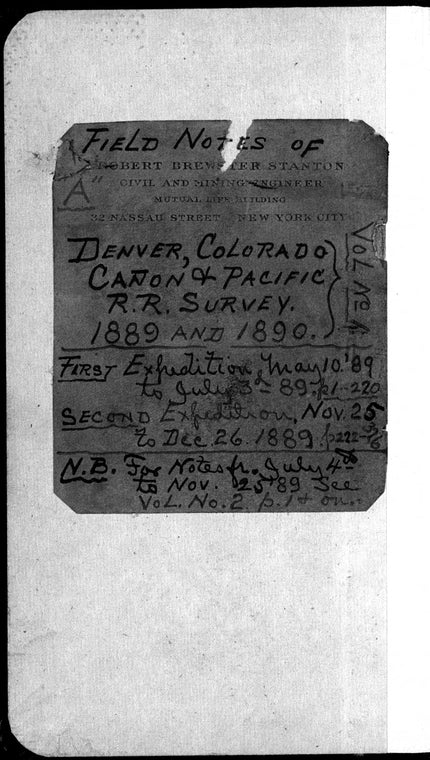 FIELD NOTES OF
"A"
ROBERT BREWSTER STANTON
CIVIL AND MINING ENGINEER
MUTUAL LIFE BUILDING
32 NASSAU STREET NEW YORK CITY
DENVER, COLORADO
CAÑON & PACIFIC
R.R. SURVEY.
1889 AND 1890.
VOL. No 1.
FIRST Expedition, May 10. '89
to July 3d 89. p1-220
SECOND Expedition, Nov. 25
to Dec. 26. 1889. p222-
N.B. For Notes fr. July 4th
to Nov. 25 '89 See
VOL. No. 2 p.1 & on.